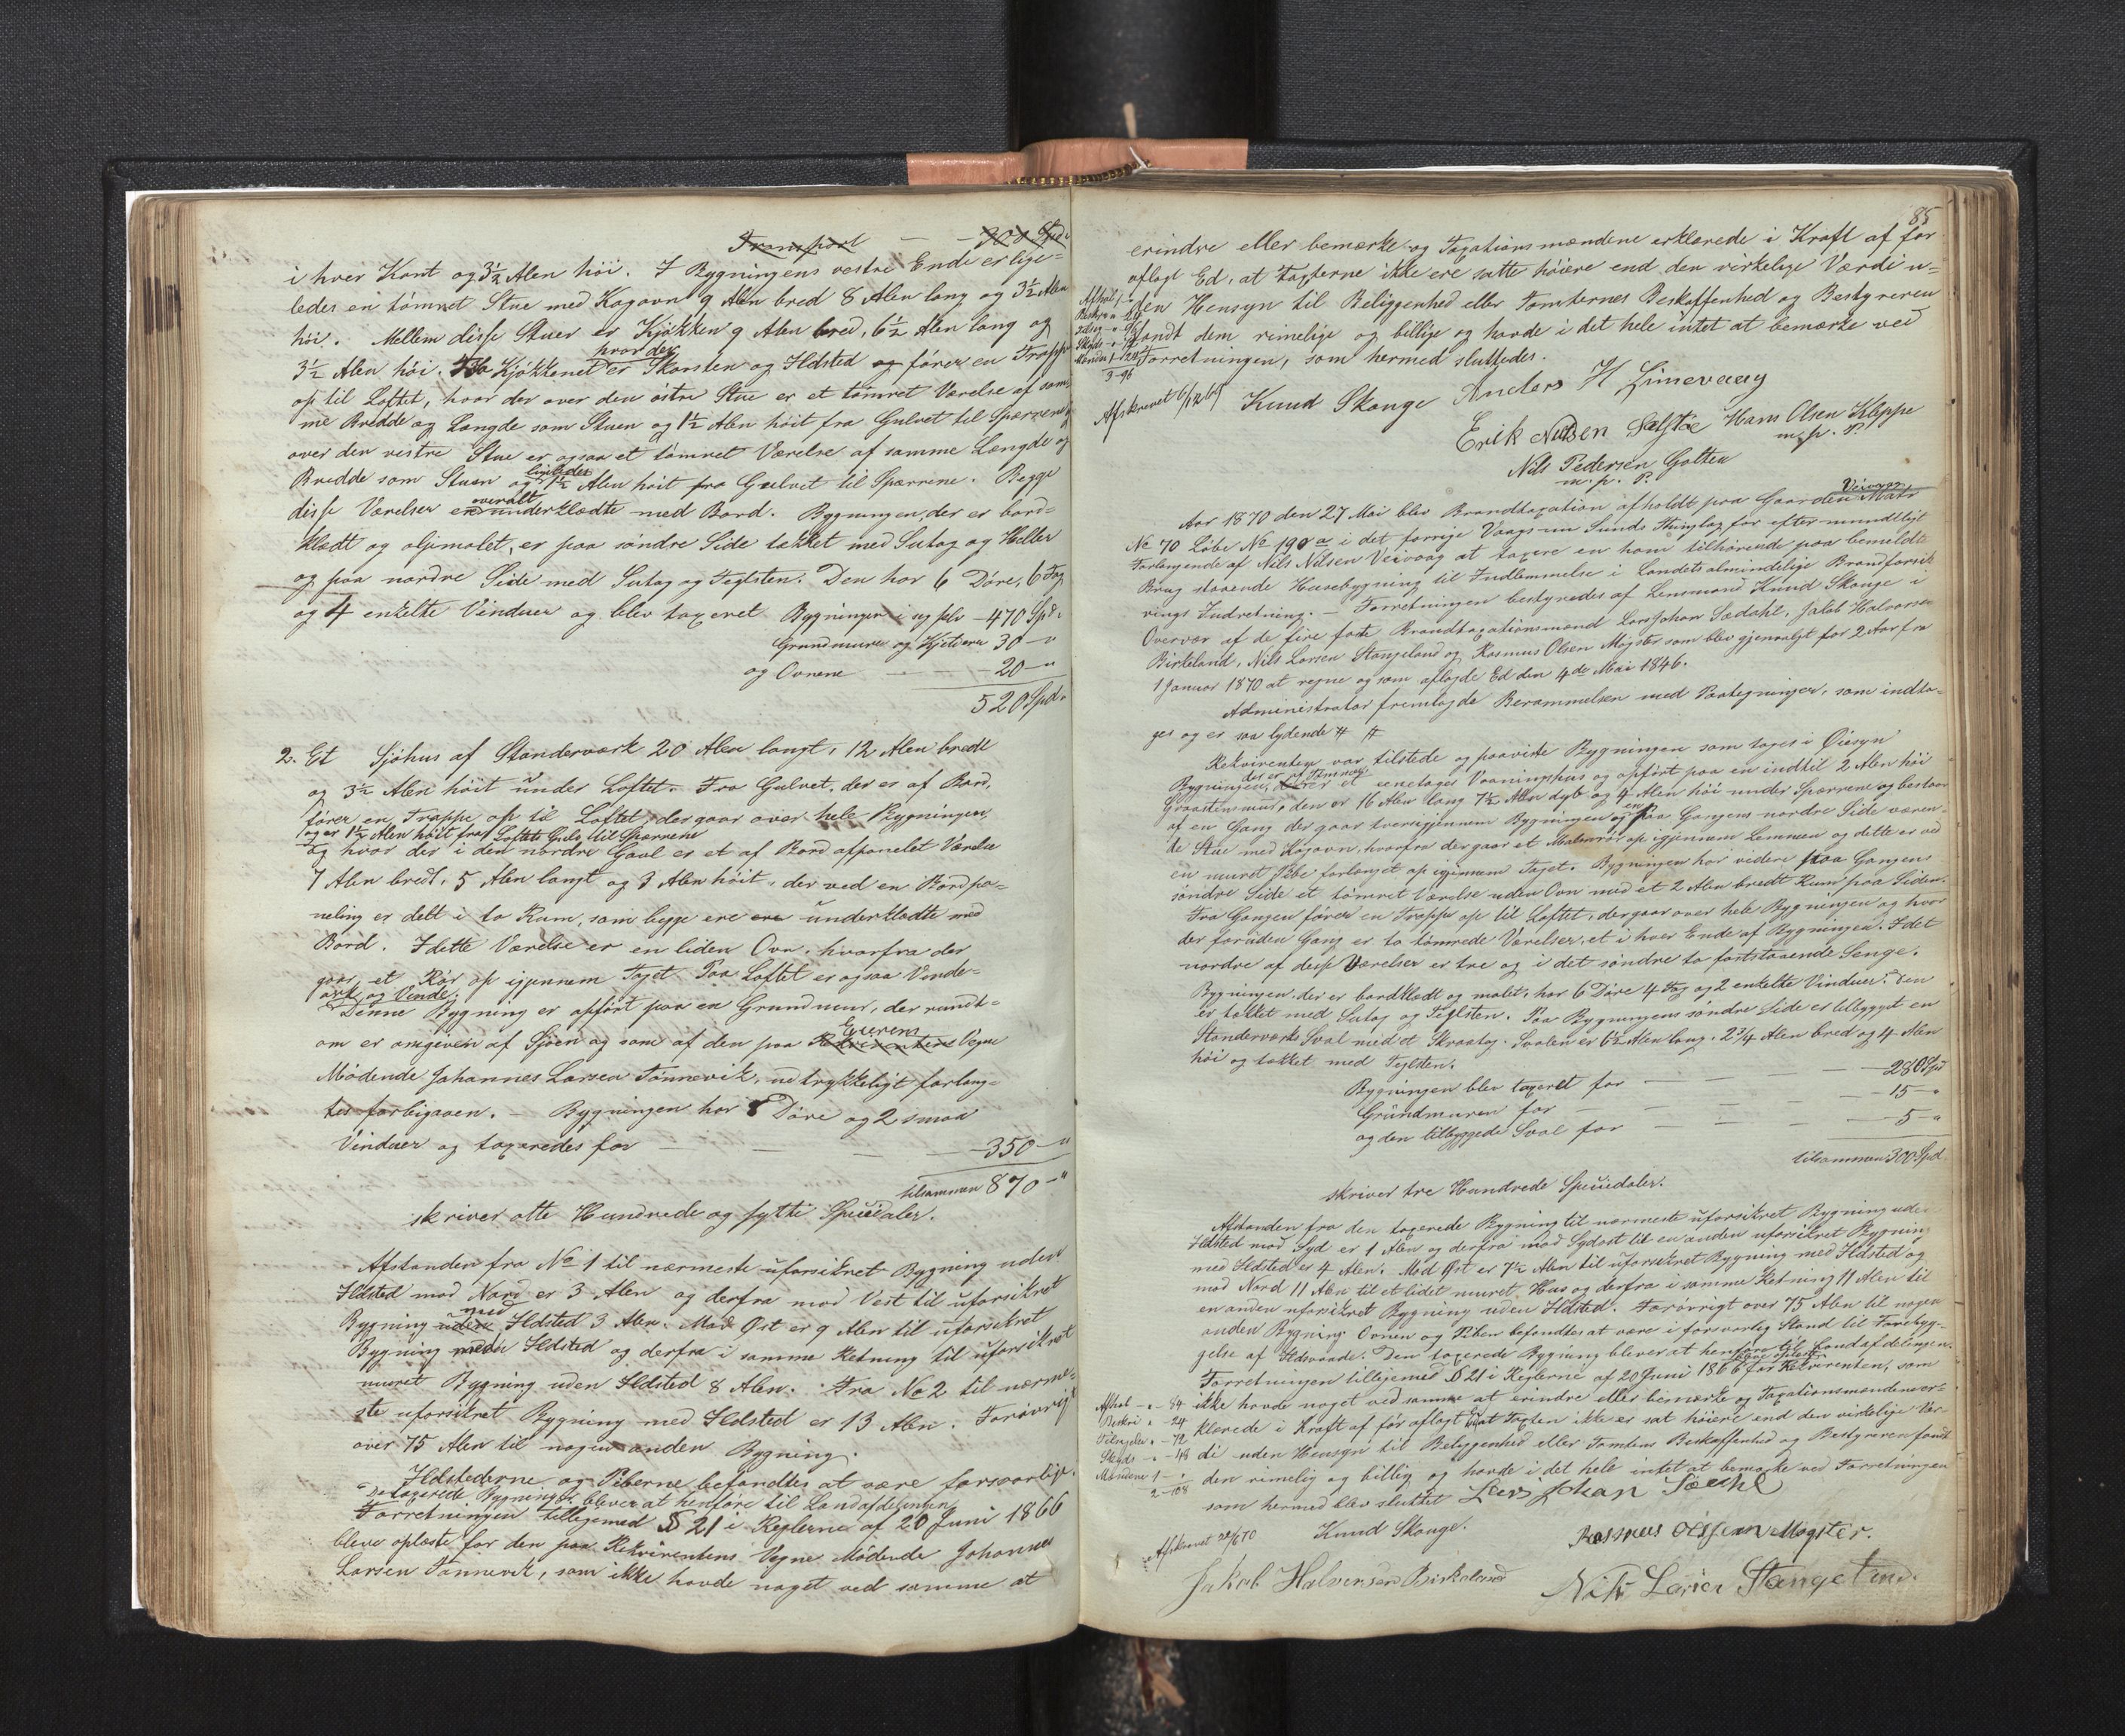 Transport — 308 Spd.
i hver Kant og 3½ Alen høi. I Bygningens vestre Ende er lige-
ledes en tømret Stue med Kogovn 9 Alen bred 8 Alen lang og 3½ Alen
høi. Mellem disse Stuer er Kjøkken 9 Alen bred, 6½ Alen lang og
3½ Alen høi. Kjøkkenet hvor der er Skorsten og Ildsted og fører en Trappe
op til Loftet, hvor der over den østre Stue er et tømret Værelse af sam-
me Bredde og Længde som Stuen og 1½ Alen høit fra Gulvet til Sparrene og
over den vestre Stue er ogsaa et tømret Værelse af samme Længde og
Bredde som Stuen og ligeledes 1½ Alen høit fra Gulvet til Sparrene. Begge
disse Værelser er overalt underklædte med Bord. Bygningen, der er bord-
klædt og oljemalet, er paa søndre Side tækket med Sutag og Heller
og paa nordre Side med Sutag og Teglsten. Den har 6 Døre, 6 Fag
og 4 enkelte Vinduer og blev taxeret Bygningen i sig selv — 470 Spd.
Grundmuren og Kjelderen 30 — "
og Ovnene — 20 — "
520 Spd.
2. Et Sjøhus af Standerværk 20 Alen langt, 12 Alen bredt
og 3½ Alen høit under Loftet. Fra Gulvet, der er af Bord,
fører en Trappe op til Loftet, der gaar over hele Bygningen,
og er 1½ Alen høit fra Loftets Gulv til Sparrene
og hvor der i den nordre Gavl er et af Bord afpanelet Værelse
7 Alen bredt, 5 Alen langt og 3 Alen høit, der ved en Bordpa-
neling er delt i to Rum, som begge ere ere underklædte med
Bord. I dette Værelse er en liden Ovn, hvorfra der
gaar et Rør op igjennem Taget. Paa Loftet er ogsaa Vinde-
ark og Vinde.
Denne Bygning er opført paa en Grundmur, der rundt-
om er omgiven af Sjøen og som af den paa Rekvirentens Eierens Vegne
Mødende Johannes Larsen Tønnevik, udtrykkeligt forlang-
tes forbigaaen. — Bygningen har 8 Døre og 2 smaa
Vinduer og taxeredes for — — — — 350 — "
tilsammen 870 — "
skriver otte Hundrede og sytti Speciedaler.
Afstanden fra No 1 til nærmeste uforsikret Bygning uden
Ildsted mod Nord er 3 Alen og derfra mod Vest til uforsikret
Bygning uden med Ildsted 3 Alen. Mod Øst er 9 Alen til uforsikret
Bygning med Ildsted og derfra i samme Retning til uforsikret
muret Bygning uden Ildsted 8 Alen. Fra No 2 til nærme-
ste uforsikret Bygning med Ildsted er 13 Alen. Forøvrigt
over 75 Alen til nogen anden Bygning.
Ildstederne og Piberne befandtes at være forsvarlige.
De taxerede Bygninger bliver at henføre til Landafdelingen
Forretningen tilligemed § 21 i Reglerne af 20 Juni 1866
bleve oplæste for den paa Rekvirentens Vegne Mødende Johannes
Larsen Tønnevik, som ikke havde noget ved samme at
85
erindre eller bemærke og Taxationsmændene erklærede i Kraft af før
aflagt Ed, at Taxterne ikke ere satte høiere end den virkelige Værdi u-
den Hensyn til Beliggenhed eller Tomternes Beskaffenhed og Bestyreren
fandt dem rimelige og billige og havde i det hele intet at bemærke ved
Forretningen, som hermed sluttedes.
3-96
Afskrevet 6/12 69
Knud Skauge Anders H Limevaag
Erik Nilsen Selstøe Hans Olsen Kleppe
m. p. P.
Nils Pedersen Golten
m. p. P.
Aar 1870 den 27 Mai blev Brandtaxation afholdt paa Gaarden Veivaag, Matr
No 70 Løbe No 190 a i det forrige Vaags nu Sunds Thinglag for efter mundtligt
Forlangende af Nils Nilsen Veivaag at taxere en ham tilhørende paa bemeldte
Brug staaende Huusbygning til Indlemmelse i Landets almindelige Brandforsik-
rings Indretning. Forretningen bestyredes af Lensmand Knud Skauge i
Overvær af de fire faste Brandtaxationsmænd Lars Johan Sædahl, Jakob Halvorsen
Birkeland, Nils Larsen Stangeland og Rasmus Olsen Møgster som blev gjenvalgt for 2 Aar fra
1 Januar 1870 at regne og som aflagde Ed den 4de Mai 1846.
Administrator fremlagde Berammelsen med Paategninger, som indta-
ges og er saa lydende
Rekvirenten var tilstede og paaviste Bygningen som toges i Øiesyn
Bygningen, der er af Tømmer, er et eenetages Vaaningshus og opført paa en indtil 2 Alen høi
Graastensmur, den er 16 Alen lang 7½ Alen dyb og 4 Alen høi under Sparrene og bestaar
af en Gang der gaar tversigjennem Bygningen og en paa Gangens nordre Side væren-
de Stue med Kogovn, hvorfra der gaar et Malmrør op igjennem Lemmen og dette er ved
en muret Pibe forlænget op igjennem Taget. Bygningen har videre paa Gangens
søndre Side et tømret Værelse uden Ovn med et 2 Alen bredt Rum paa Siden.
Fra Gangen fører en Trappe op til Loftet, der gaar over hele Bygningen og hvor
der foruden Gang er to tømrede Værelser, et i hver Ende af Bygningen. I det
nordre af disse Værelser er tre og i det søndre to faststaaende Senge.
Bygningen, der er bordklædt og malet, har 6 Døre 4 Fag og 2 enkelte Vinduer. Den
er tækket med Sutag og Teglsten. Paa Bygningens søndre Side er tilbygget en
Standerværks Sval med et Skraatag. Svalen er 6½ Alen lang, 2¾ Alen bred og 4 Alen
høi og tækket med Teglsten.
Bygningen blev taxeret for — — — — — 280 Spd
Grundmuren for — — — — — 15 — "
og den tilbyggede Sval for — — — — 5 — "
tilsammen 300 Spd
skriver tre Hundrede Speciedaler.
Afstanden fra den taxerede Bygning til nærmeste uforsikret Bygning uden
Ildsted mod Syd er 1 Alen og derfra mod Sydost til en anden uforsikret Bygning
med Ildsted er 4 Alen. Mod Øst er 7½ Alen til uforsikret Bygning med Ildsted og
mod Nord 11 Alen til et lidet muret Hus og derfra i samme Retning 11 Alen til
en anden uforsikret Bygning uden Ildsted. Forøvrigt over 75 Alen til nogen
anden Bygning. Ovnen og Piben befandtes at være i forsvarlig Stand til Forebyg-
gelse af Ildsvaade. Den taxerede Bygning bliver at henføre til Landafdelingen.
Forretningen tilligemed § 21 i Reglerne af 20 Juni 1866 for Rekvirenten, som
ikke havde noget ved samme at erindre eller bemærke og Taxationsmændene er-
klærede i Kraft af før aflagt Ed at Taxten ikke er sat høiere end den virkelige Vær-
di uden Hensyn til Beliggenhed eller Tomtens Beskaffenhed og Bestyreren fandt
den rimelig og billig og havde i det hele intet at bemærke ved Forretningen
som hermed blev sluttet Lars Johan Sædhl
Afhol - " - 84
Beskri " - 24
Tilsyden " - 72
Skyds - " - 48
Mændene 1 - "
2-108
Afskrevet 22/6 70
Knud Skauge.
Rasmus Olssenn Møgster.
Jakob Halvorsen Birkeland
Nils Larsen Stangeland.